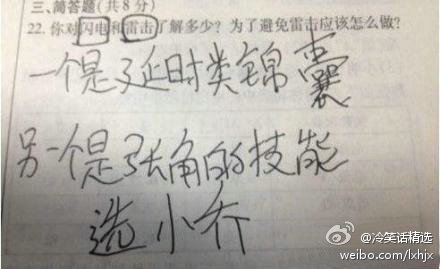 三、简答题(共8分)
22. 你对闪电和雷击了解多少？为了避免雷击应该怎么做？
一个是延时类锦囊
另一个是张角的技能
选小乔
@冷笑话精选
weibo.com/lxhjx